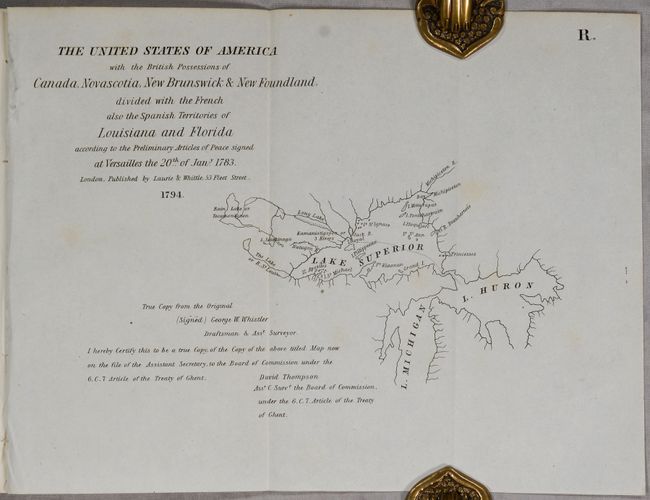 R.
THE UNITED STATES OF AMERICA
with the British Possessions of
Canada, Novascotia, New Brunswick & New Foundland,
divided with the French
also the Spanish Territories of
Louisiana and Florida
according to the Preliminary Articles of Peace signed
at Versailles the 20th of Jany. 1783.
London, Published by Laurie & Whittle, 53 Fleet Street.
1794.
Michipicoten R.
Bay Michipicoten
Long Lake
3 Rivers
Royal
LAKE SUPERIOR
St. Michael
Grand I.
The Lake
or R. St. Louis
L. HURON
L. MICHIGAN
True Copy from the Original
(Signed) George W. Whistler
Draftsman & Asst. Surveyor.
I hereby Certify this to be a true Copy, of the Copy of the above titled Map now
on the file of the Assistant Secretary, to the Board of Commission under the
6. & 7 Article of the Treaty of Ghent.
David Thompson
Asst. & Survr. the Board of Commission,
under the 6. & 7. Article of the Treaty
of Ghent.